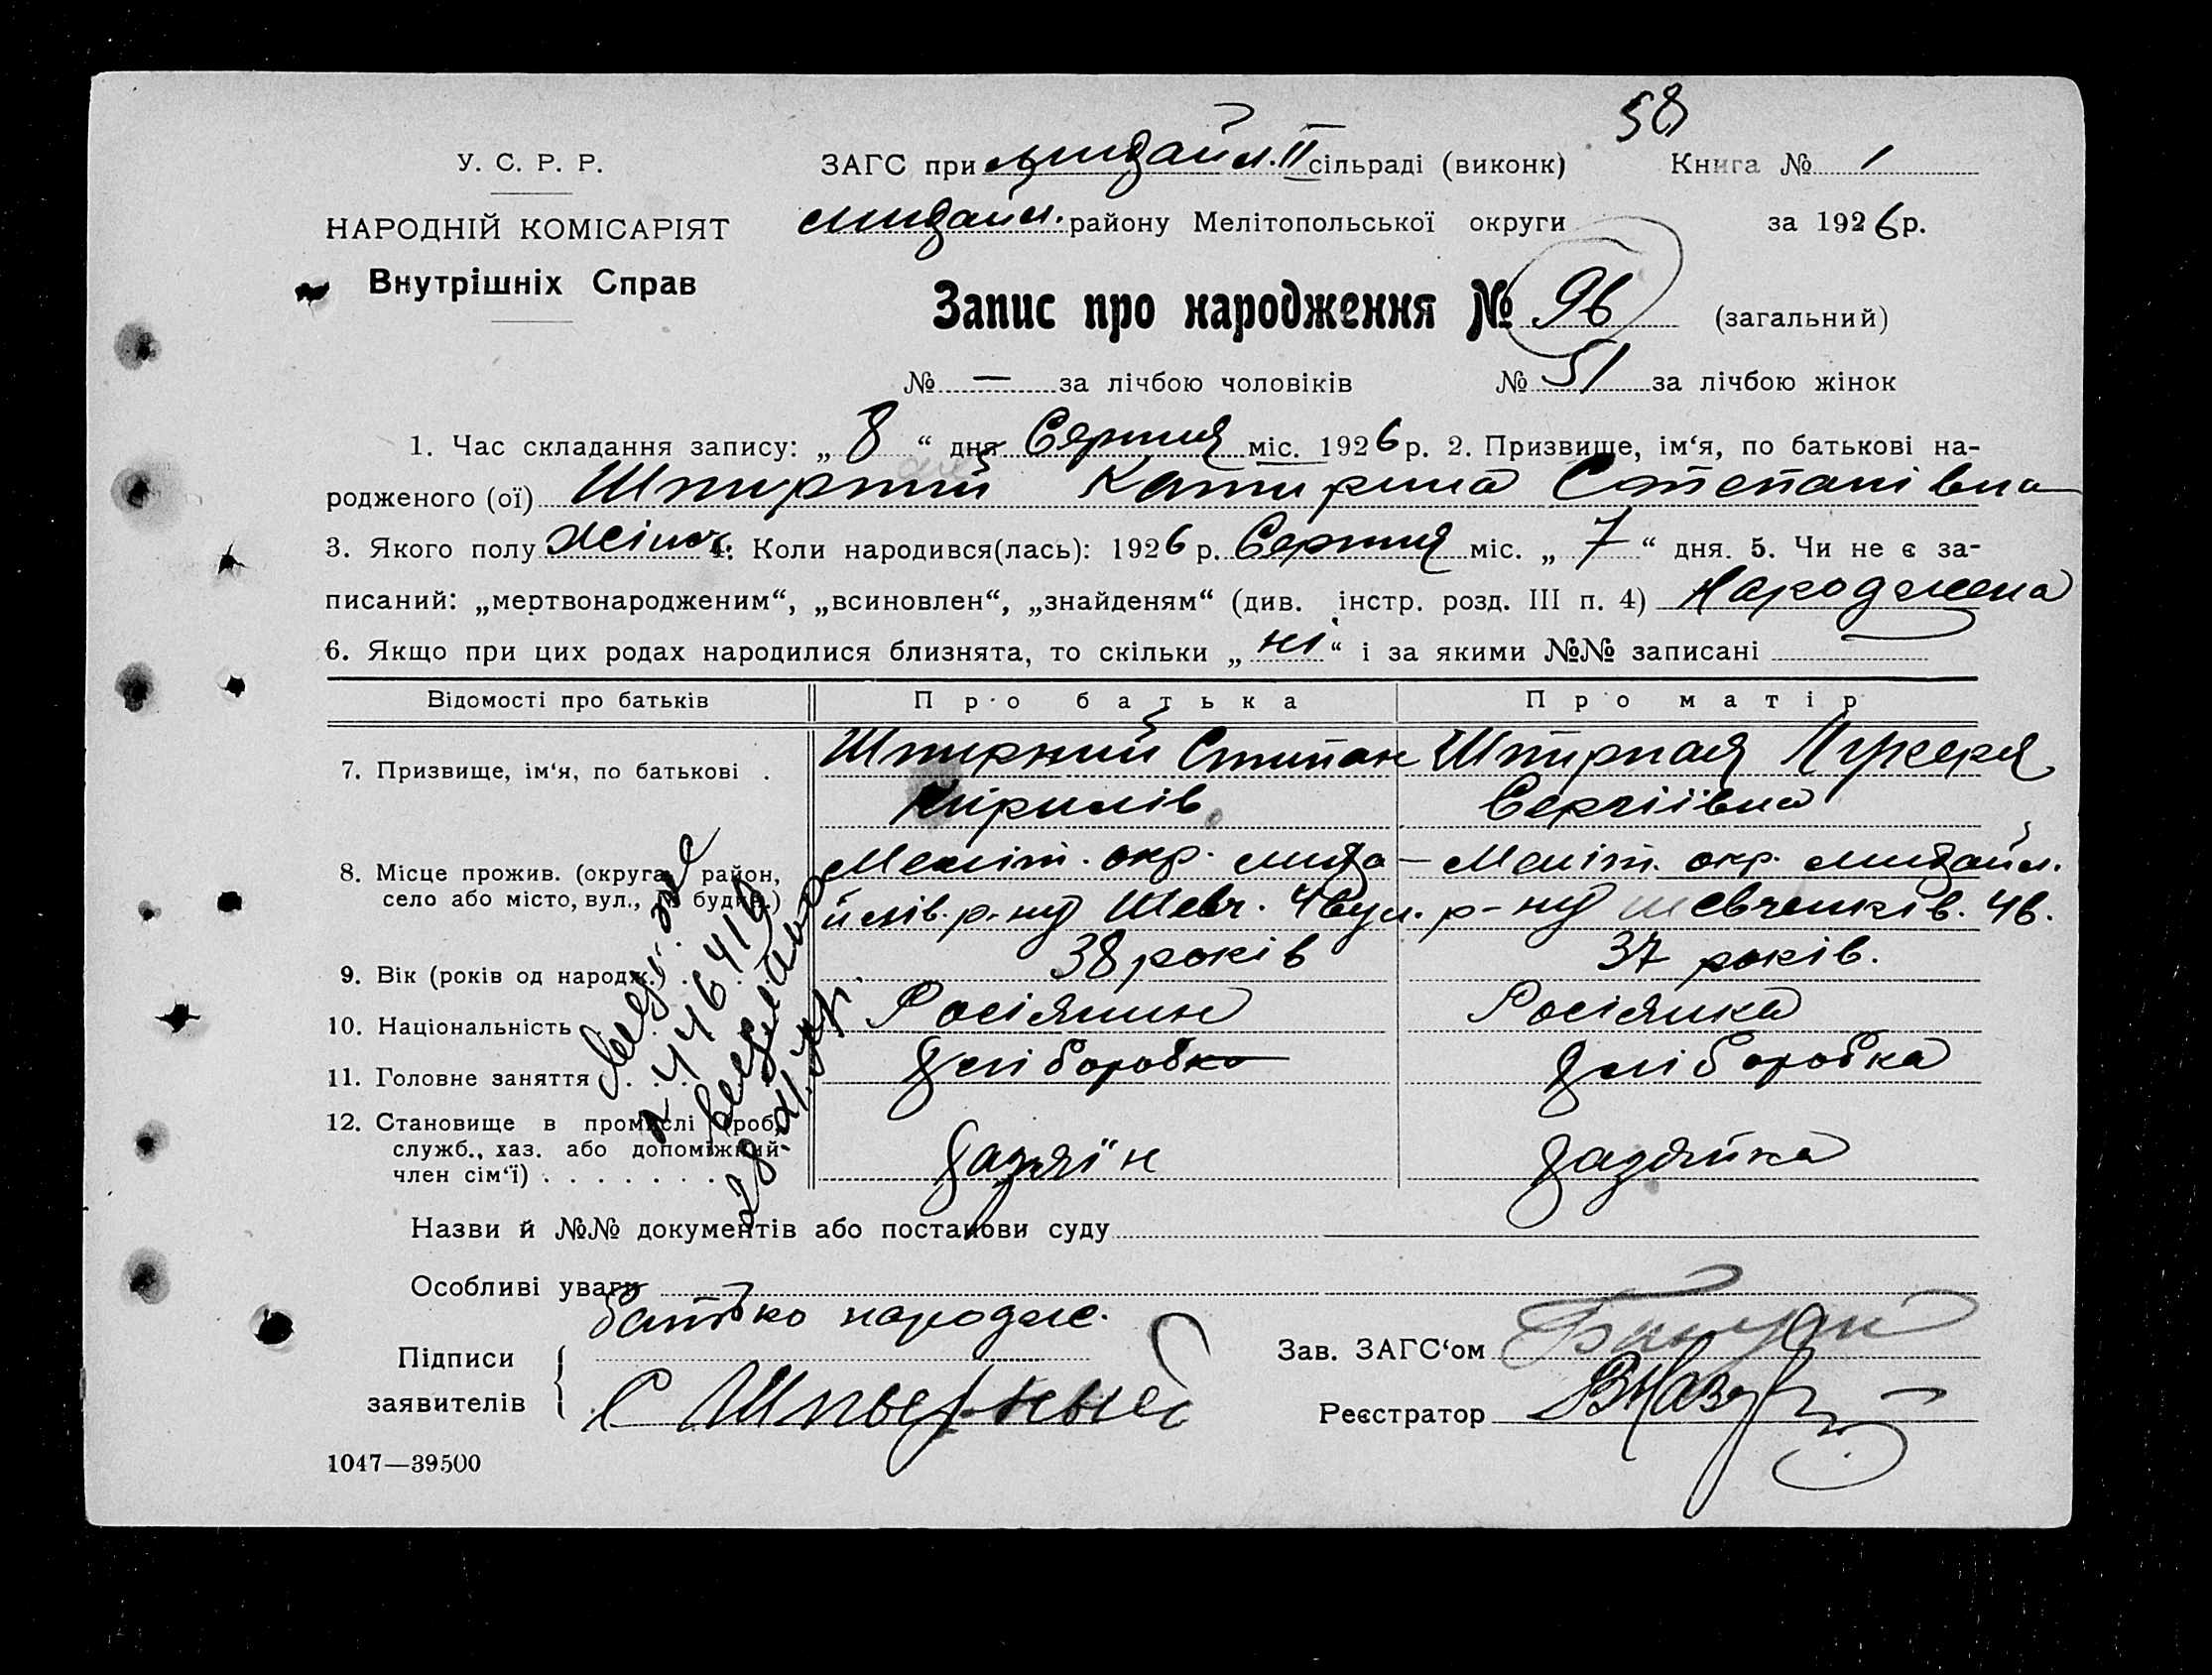 58
У. С. Р. Р.
НАРОДНІЙ КОМІСАРІЯТ
Внутрішніх Справ
ЗАГС при михайл. II сільраді (виконк) Книга № 1
михайл. району Мелітопольської округи за 1926 р.
Запис про народження № 96 (загальний)
№ — за лічбою чоловіків № 51 за лічбою жінок
1. Час складання запису: „ 8 “ дня Серпня міс. 1926 р. 2. Призвище, ім‘я, по батькові на-
родженого (ої) Штирний Катирина Стетанівна
3. Якого полу жіноч. 4. Коли народився(лась): 1926 р. Серпня міс. „ 7 “ дня. 5. Чи не є за-
писаний: „мертвонародженим“, „всиновлен“, „знайденям“ (див. інстр. розд. III п. 4) Народжена
6. Якщо при цих родах народилися близнята, то скільки „ ні “ і за якими №№ записані
Відомості про батьків Про батька Про матір
7. Призвище, ім‘я, по батькові . Штирний Стипан Штирная Лукеря
Кірилів Сергіївна
8. Місце прожив. (округа, район, Меліт. окр. миха- Меліт. окр. михайл.
село або місто, вул., № будин.) йлів. р-ну Шевч. 4 вул. р-ну шевченків. 4 в.
9. Вік (років од народж.) . . 38 років 37 років.
10. Національність Росіянин Росіянка
11. Головне заняття . . . . хліборобка хліборобка
12. Становище в промислі (роб.,
служб., хаз. або допоміжний
член сім‘ї) . . . . . . . хазяїн хазяйка
28
Назви й №№ документів або постанови суду
Особливі уваги
батько народж.
Підписи
заявителів С Шпырный
Зав. ЗАГС‘ом
Реєстратор
1047—39500